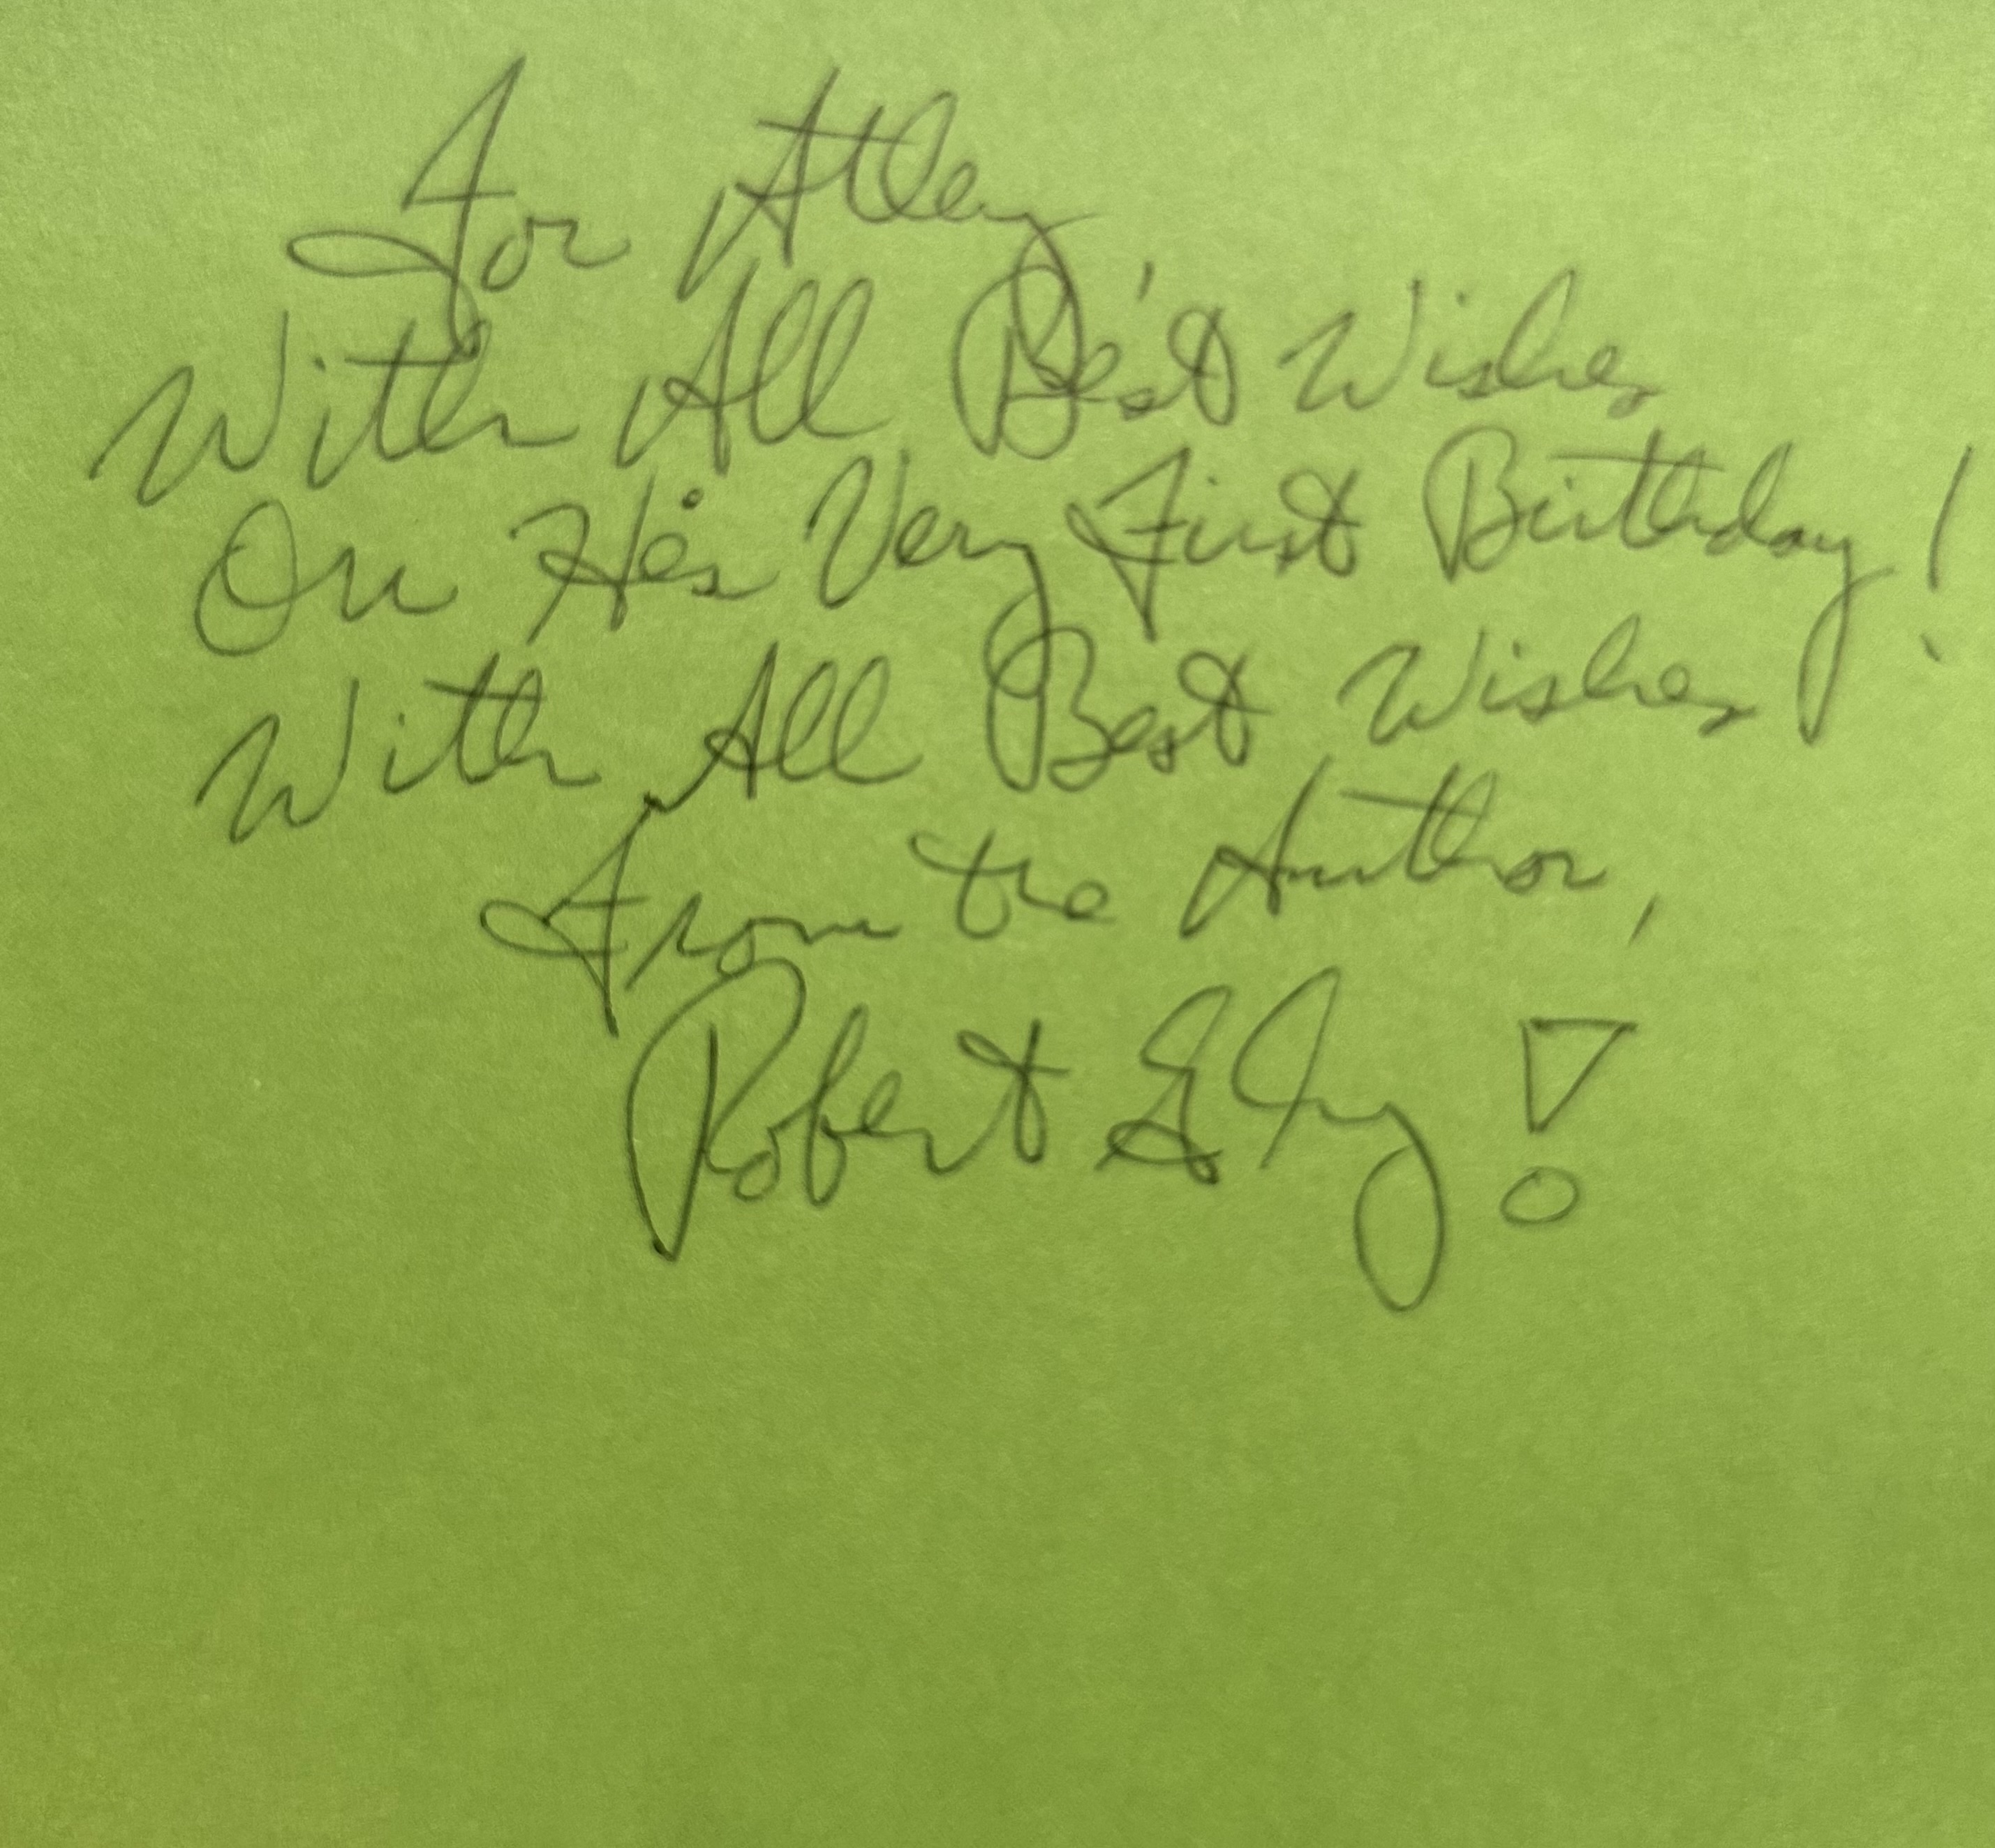 For Atley
With All Best Wishes
On His Very First Birthday!
With All Best Wishes
From the Author,
Robert !